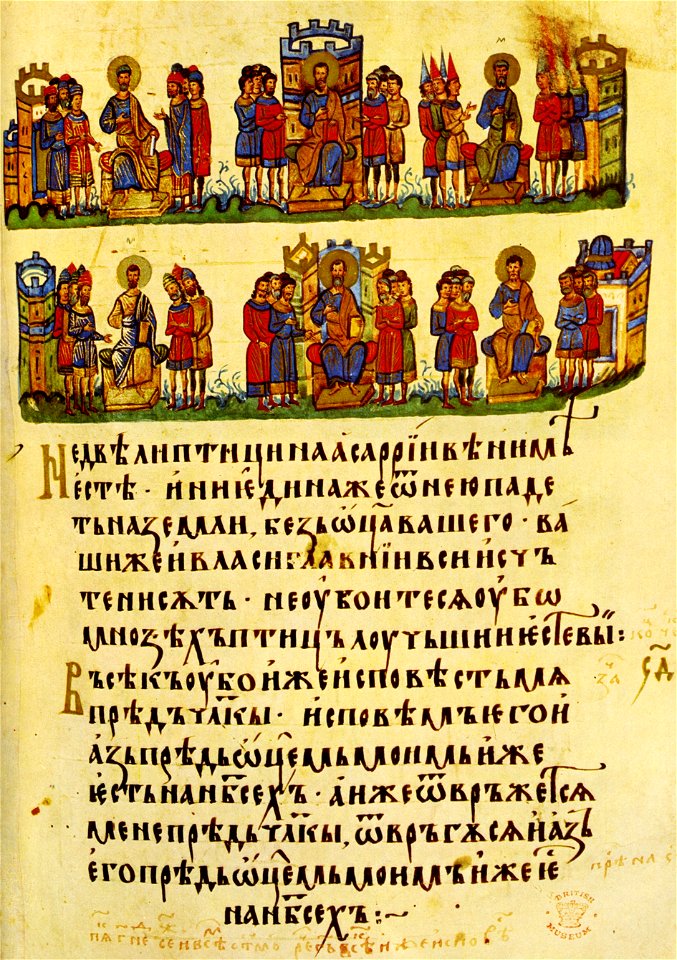 Не двѣ ли птици на асарїи вѣнимѣ
естѣ · и ни едина же ѿ нею паде
ть на земли, безь ѡц҃а вашего · ва
ши же и власи главнїи вси исъ
тени сѫть · не оубоите сѧ оубѡ
мнозѣхъ птицъ лоучьши есте вы:
Въсѣкъ оубо иже исповѣсть мѧ
прѣдъ чл҃кы · исповѣмъ ѥго и
азь прѣдь ѡц҃емь моимь иже
ѥсть на нб҃сехъ · а иже ѿвръжет сѧ
мене прѣдь чл҃кы, ѿвръгѫ сѧ и азъ
его прѣдь ѡц҃емь моимъ иже ѥ
на нб҃сехъ :~
BRITISH
MUSEUM